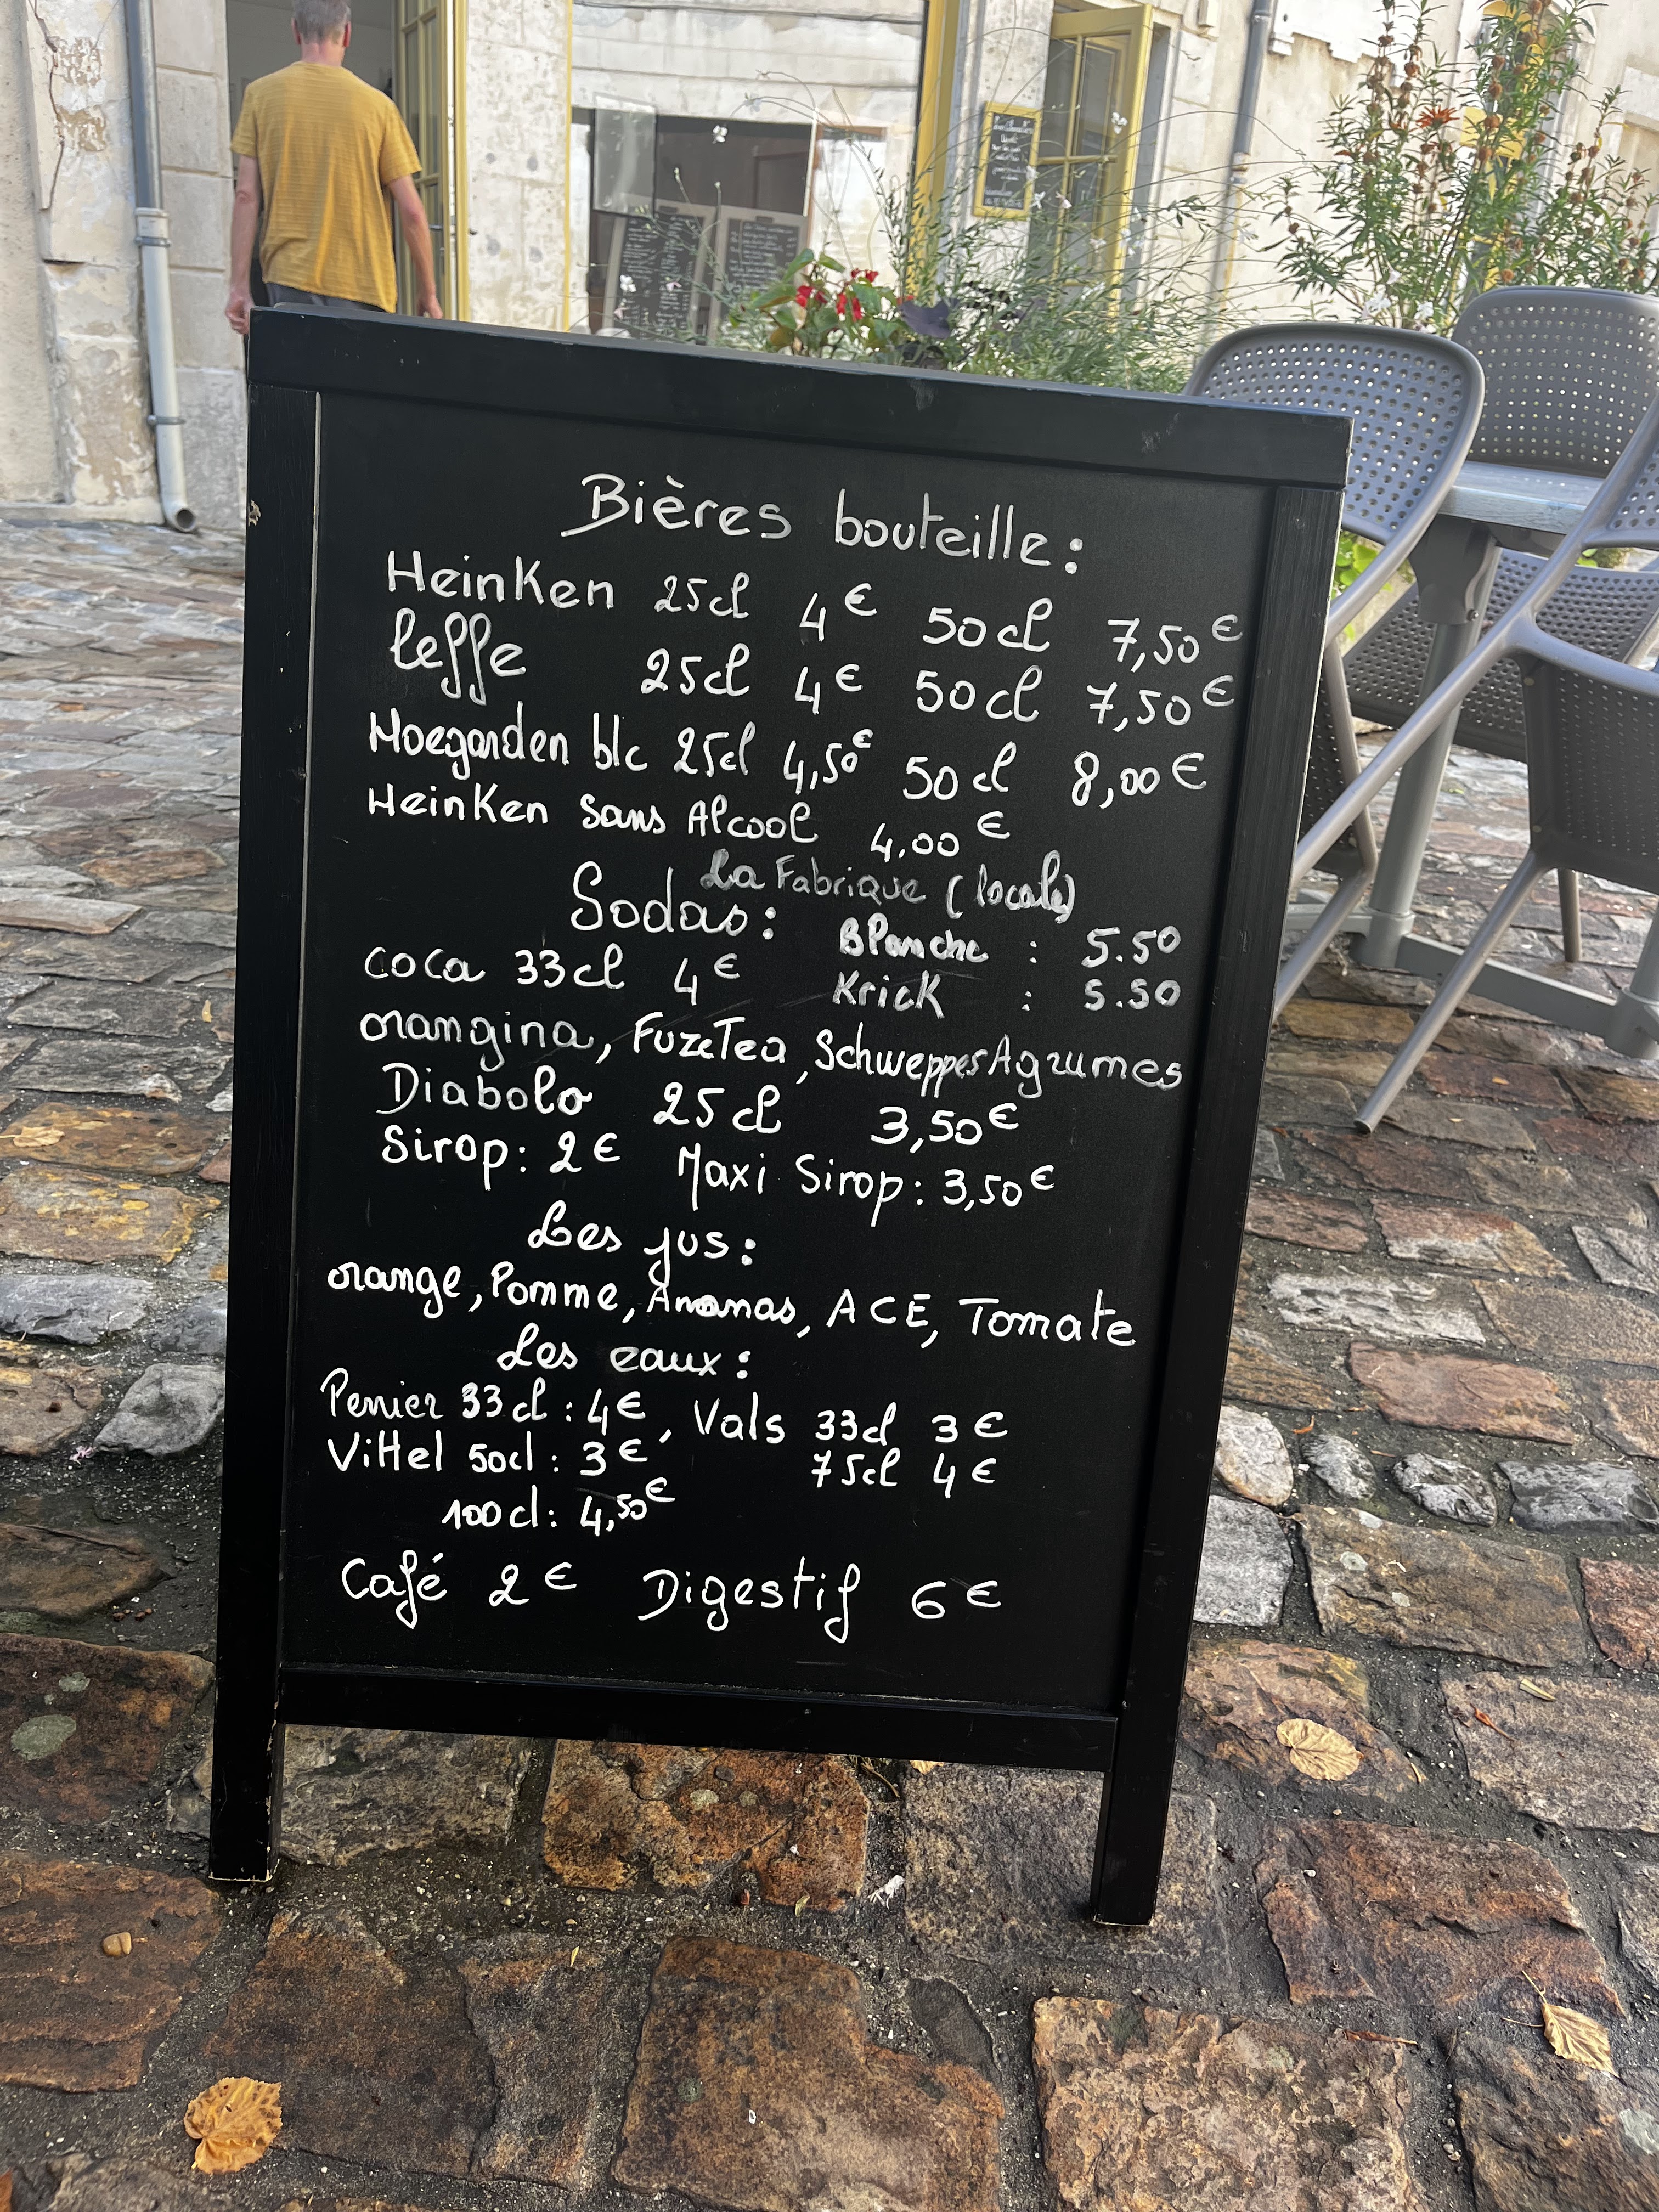 Bières bouteille :
HeinKen 25cl 4€ 50cl 7,50€
leffe 25cl 4€ 50cl 7,50€
Hoegarden blc 25cl 4,50€ 50cl 8,00€
HeinKen Sans Alcool 4.00€
La Fabrique (locale)
Sodas :
Blanche : 5.50
coca 33cl 4€
KricK : 5.50
orangina, FuzeTea, Schweppes Agrumes
Diabolo 25cl 3,50€
Sirop : 2€ Maxi Sirop : 3,50€
Les jus :
orange, Pomme, Ananas, ACE, Tomate
Les eaux :
Perrier 33cl : 4€, Vals 33cl 3€
Vittel 50cl : 3€ 75cl 4€
100cl : 4,50€
Café 2€ Digestif 6€